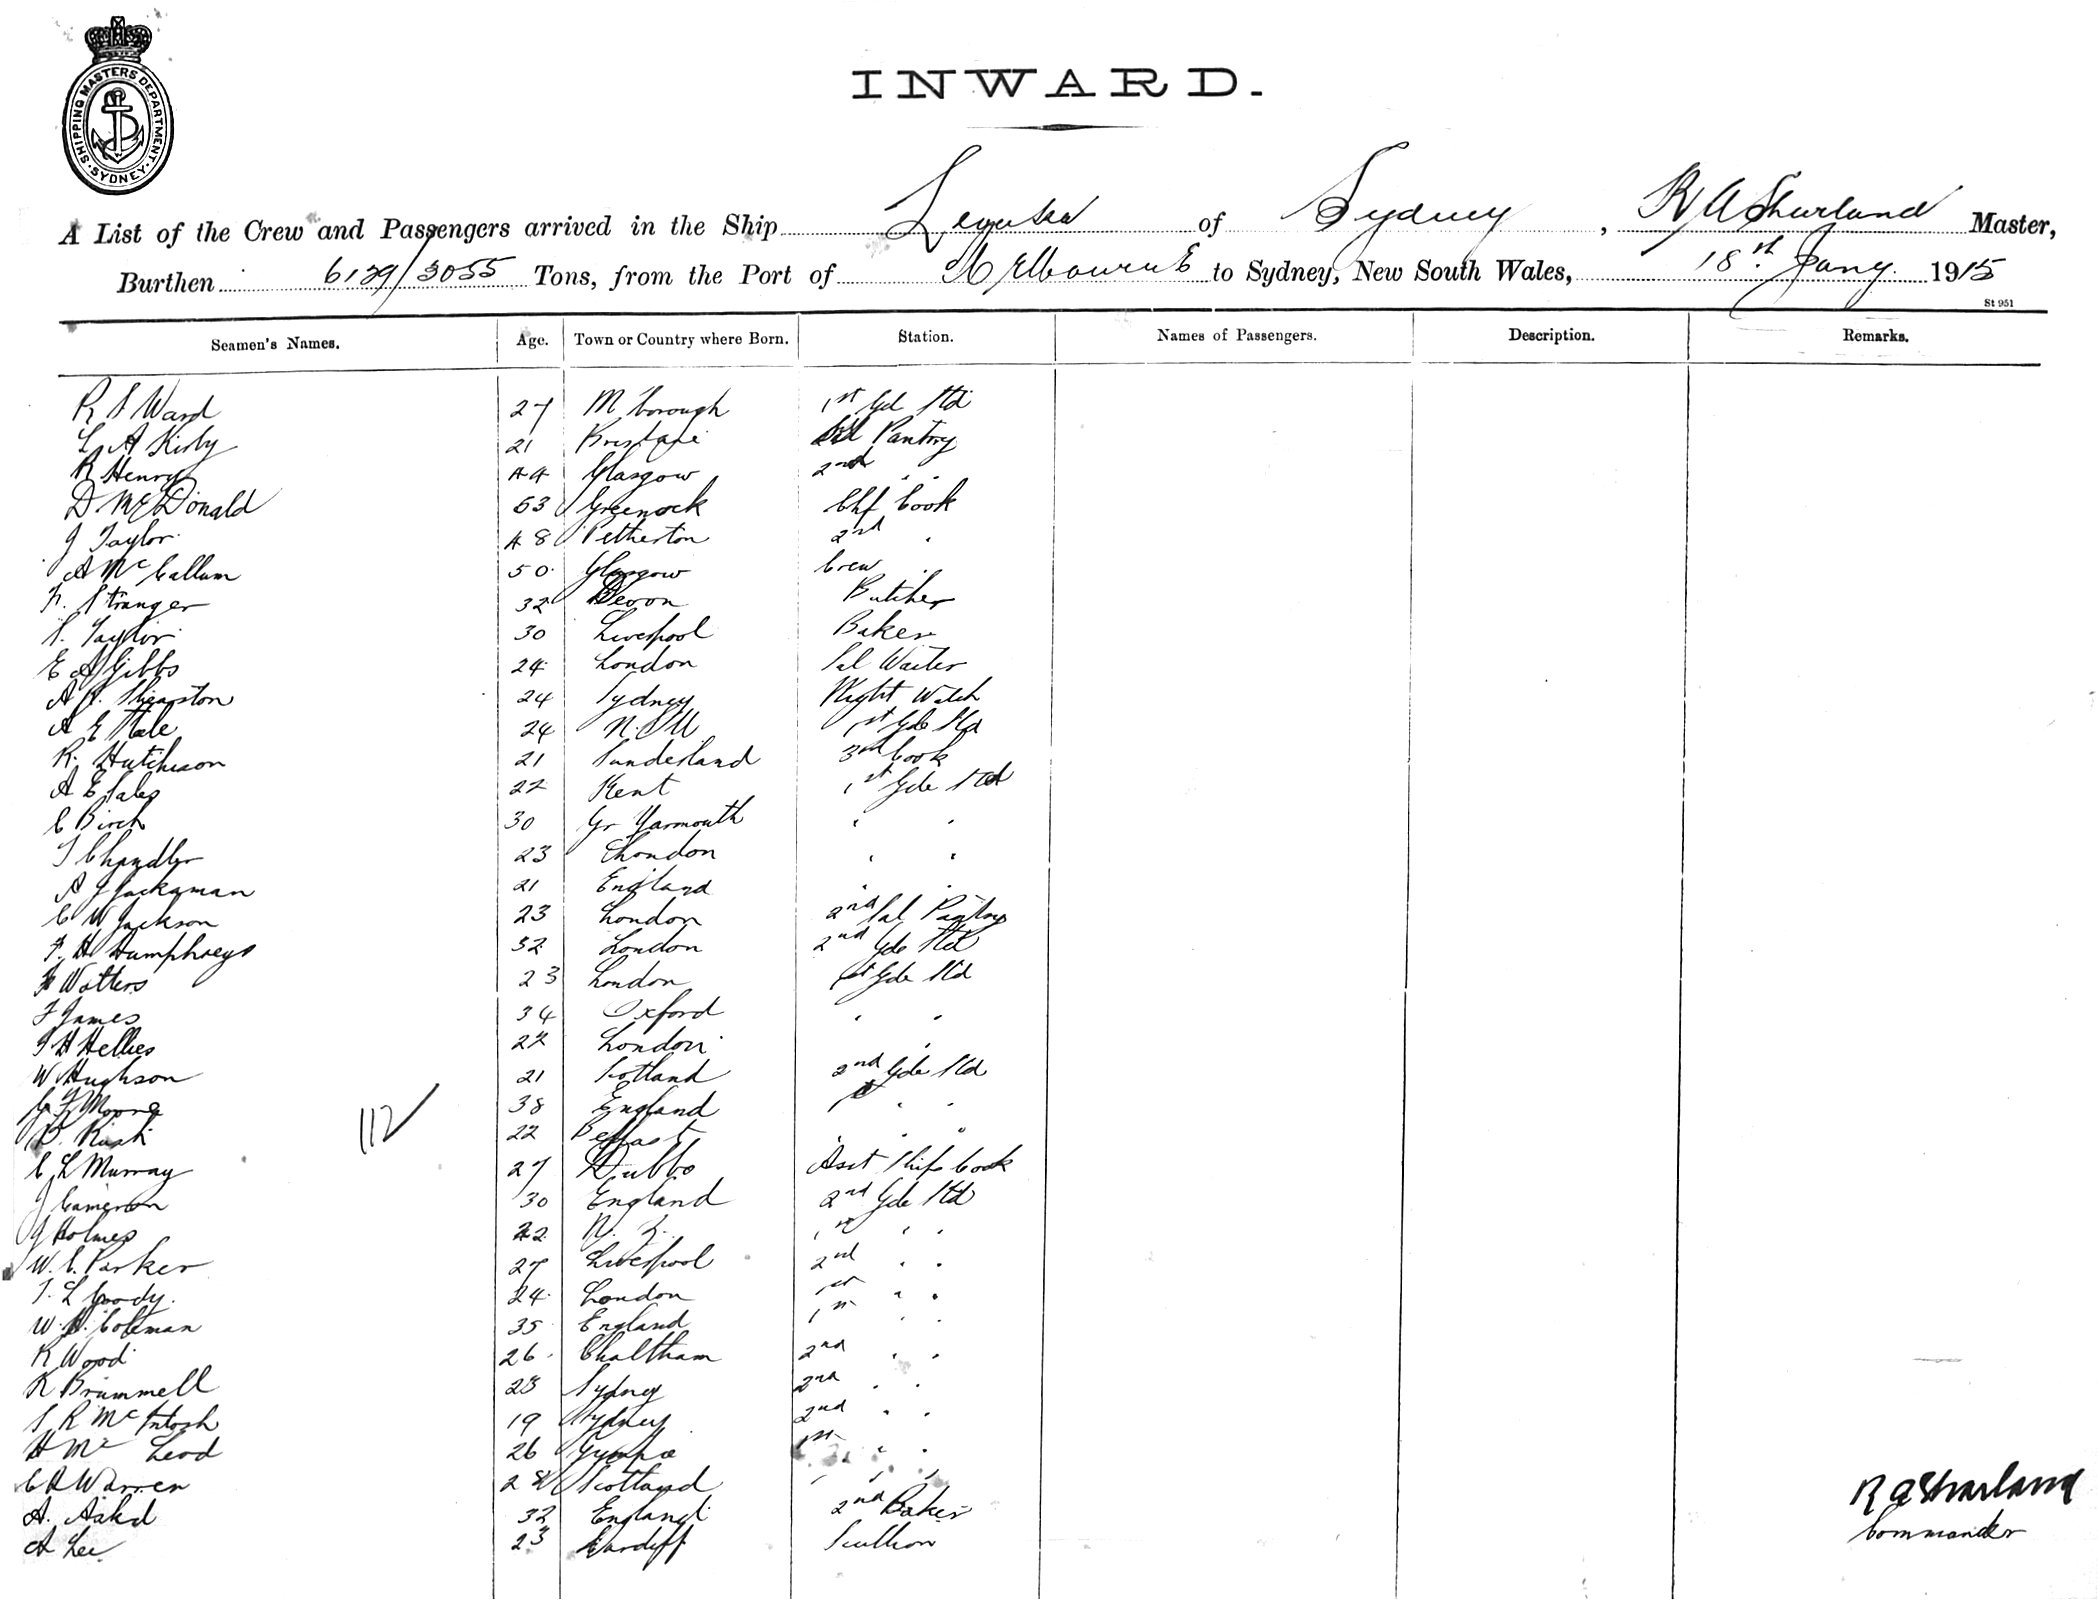 SHIPPING MASTERS DEPARTMENT · SYDNEY ·
INWARD.
A List of the Crew and Passengers arrived in the Ship of Sydney, R A Sharland Master,
Burthen 6129/3055 Tons, from the Port of Melbourne to Sydney, New South Wales, 18th Jany. 1915
St 951
Seamen's Names. Age. Town or Country where Born. Station. Names of Passengers. Description. Remarks.
R S Ward 27 M'borough 1st Gd Std
L A Kirby 21 Brisbane Pantry
R Henry 44 Glasgow 2nd " "
D McDonald 53 Greenock Chf Cook
J Taylor 48 Petherton 2nd "
A McCallum 50 Glasgow Crew "
F. Stranger 32 Devon Butcher
S. Taylor 30 Liverpool Baker
E A Gibbs 24 London Sal Waiter
A R. Shearston 24 Sydney Night Watch
A E Hale 24 N.S.W. 1st Gde Std
R. Hutchison 21 Sunderland 3rd Cook
A E Sales 22 Kent 1st Gde Std
C Birch 30 Gr Yarmouth " "
T Chandler 23 London " "
A J Jackaman 21 England " "
C W Jackson 23 London 2nd Sal Pantry
F. H Humphreys 32 London 2nd Gde Std
Watters 23 London 1st Gde Std
F James 34 Oxford " "
J H Hellies 22 London "
W Hughson 21 Scotland 2nd Gde Std
G F Moore 38 England " "
Rush 22 Belfast " " "
112
C L Murray 27 Dubbo Asst Ships Cook
J Cameron 30 England 2nd Gde Std
J Holmes 22 N. Z. 1st " "
W. C. Parker 27 Liverpool 2nd " "
T. L Goody. 24 London 1st " "
W. H. Coleman 35 England 1st " "
R Wood 26 Chaltham 2nd " "
R Brummell 23 Sydney 2nd " "
S R McIntosh 19 Sydney 2nd " "
H McLeod 26 Gympie 1st " "
C A Warren 28 Scotland " " "
A. Askd 32 England 2nd Baker
A Lee 23 Cardiff Scullion
R A Sharland
Commander